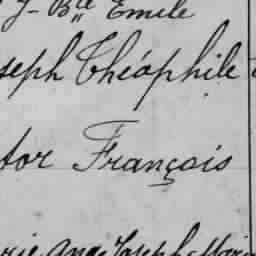 J- Bte Emile
seph Théophile
tor François
rie Ange Joseph Marie